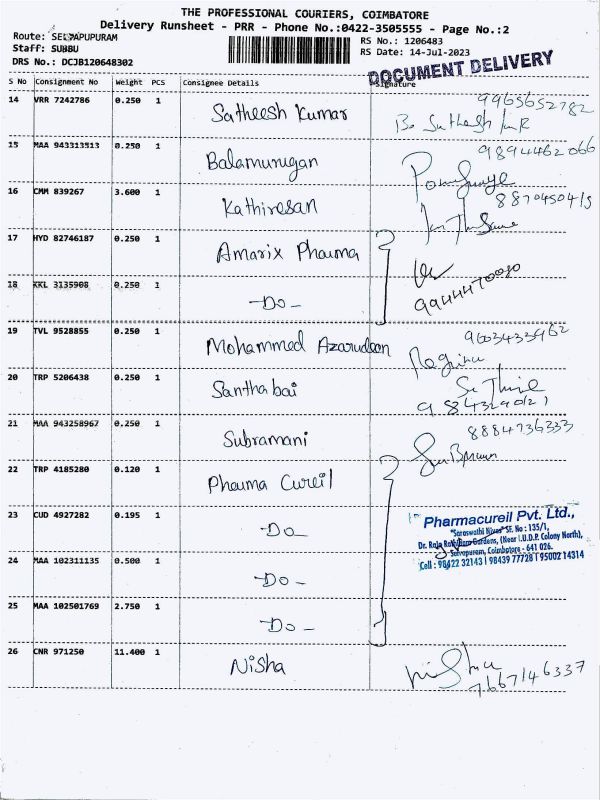 THE PROFESSIONAL COURIERS, COIMBATORE
Delivery Runsheet - PRR - Phone No.:0422-3505555 - Page No.:2
Route: SELVAPUPURAM
RS No.: 1206483
Staff: SUBBU
RS Date: 14-Jul-2023
DRS No.: DCJB120648302
DOCUMENT DELIVERY
S No Consignment No Weight PCS Consignee Details Signature
14 VRR 7242786 0.250 1 Satheesh Kumar 9965652782
15 MAA 943313513 0.250 1 Balamurugan 9894462066
16 CMM 839267 3.600 1 Kathiresan
17 HYD 82746187 0.250 1 Amarix Pharma
18 KKL 3135908 0.250 1 -Do-
19 TVL 9528855 0.250 1 Mohammed Azarudeen
20 TRP 5206438 0.250 1 Santhabai
21 MAA 943258967 0.250 1 Subramani 8884736333
22 TRP 4185280 0.120 1 Pharma Cureil
23 CUD 4927282 0.195 1 -Do-
Pharmacureil Pvt. Ltd.,
"Saraswathi Nivas" SF. No : 135/1,
Gardens, (Near I.U.D.P. Colony North),
Selvapuram, Coimbatore - 641 026.
Cell : 98422 32143 | 98439 77728 | 95002 14314
24 MAA 102311135 0.500 1 -Do-
25 MAA 102501769 2.750 1 -Do-
26 CNR 971250 11.400 1 Nisha 7667146337